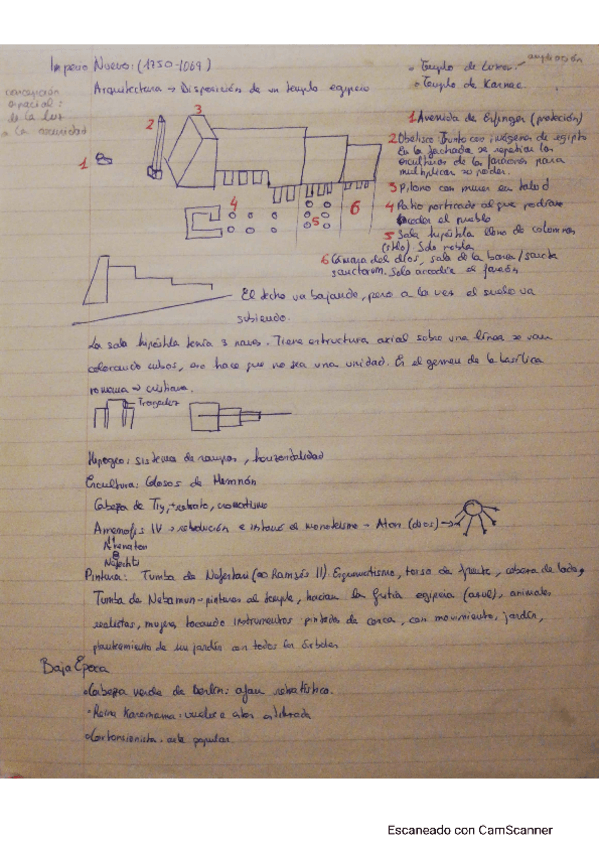 Imperio Nuevo: (1750-1069)
• Templo de Luxor
ampliación
• Templo de Karnac
Arquitectura → Disposición de un templo egipcio
concepción
espacial:
de la luz
a la oscuridad
1 Avenida de Esfinges (protección)
2 Obelisco: Junto con imágenes de egipto
En la fachada se repetían las
esculturas de los faraones para
multiplicar su poder.
3 Pilono con muros en talud
4 Patio porticado al que podían
acceder el pueblo
5 Sala hipóstila llena de columnas
Solo nobles
6 Cámara del dios, sala de la barca / sancta
sanctorum. Solo accedía el faraón
1
2
3
4
5
6
El techo va bajando, pero a la vez el suelo va
subiendo.
La sala hipóstila tenía 3 naves. Tiene estructura axial sobre una línea se van
colocando cubos, eso hace que no sea una unidad. Es el germen de la basílica
romana → cristiana.
Hipogeo: sistema de rampas, horizontalidad
Escultura: Colosos de Memnón
Cabeza de Tiy → retrato, cromatismo
Amenofis IV → revolución e instauró el monoteísmo - Aton (dios) →
Akenaton
Nefertiti
Pintura: Tumba de Nefertari (∞ Ramsés II). Esquematismo, torso de frente, cabeza de lado,
Tumba de Nebamun - pinturas al temple, hacían la frita egipcia (azul), animales
realistas, mujeres tocando instrumentos pintadas de cerca, con movimiento, jardín,
planteamiento de un jardín con todos los árboles
Baja Época
• Cabeza verde de Berlín: afán retratístico.
• Reina Karomama: vuelve a estar estilizada
arte popular.
Escaneado con CamScanner